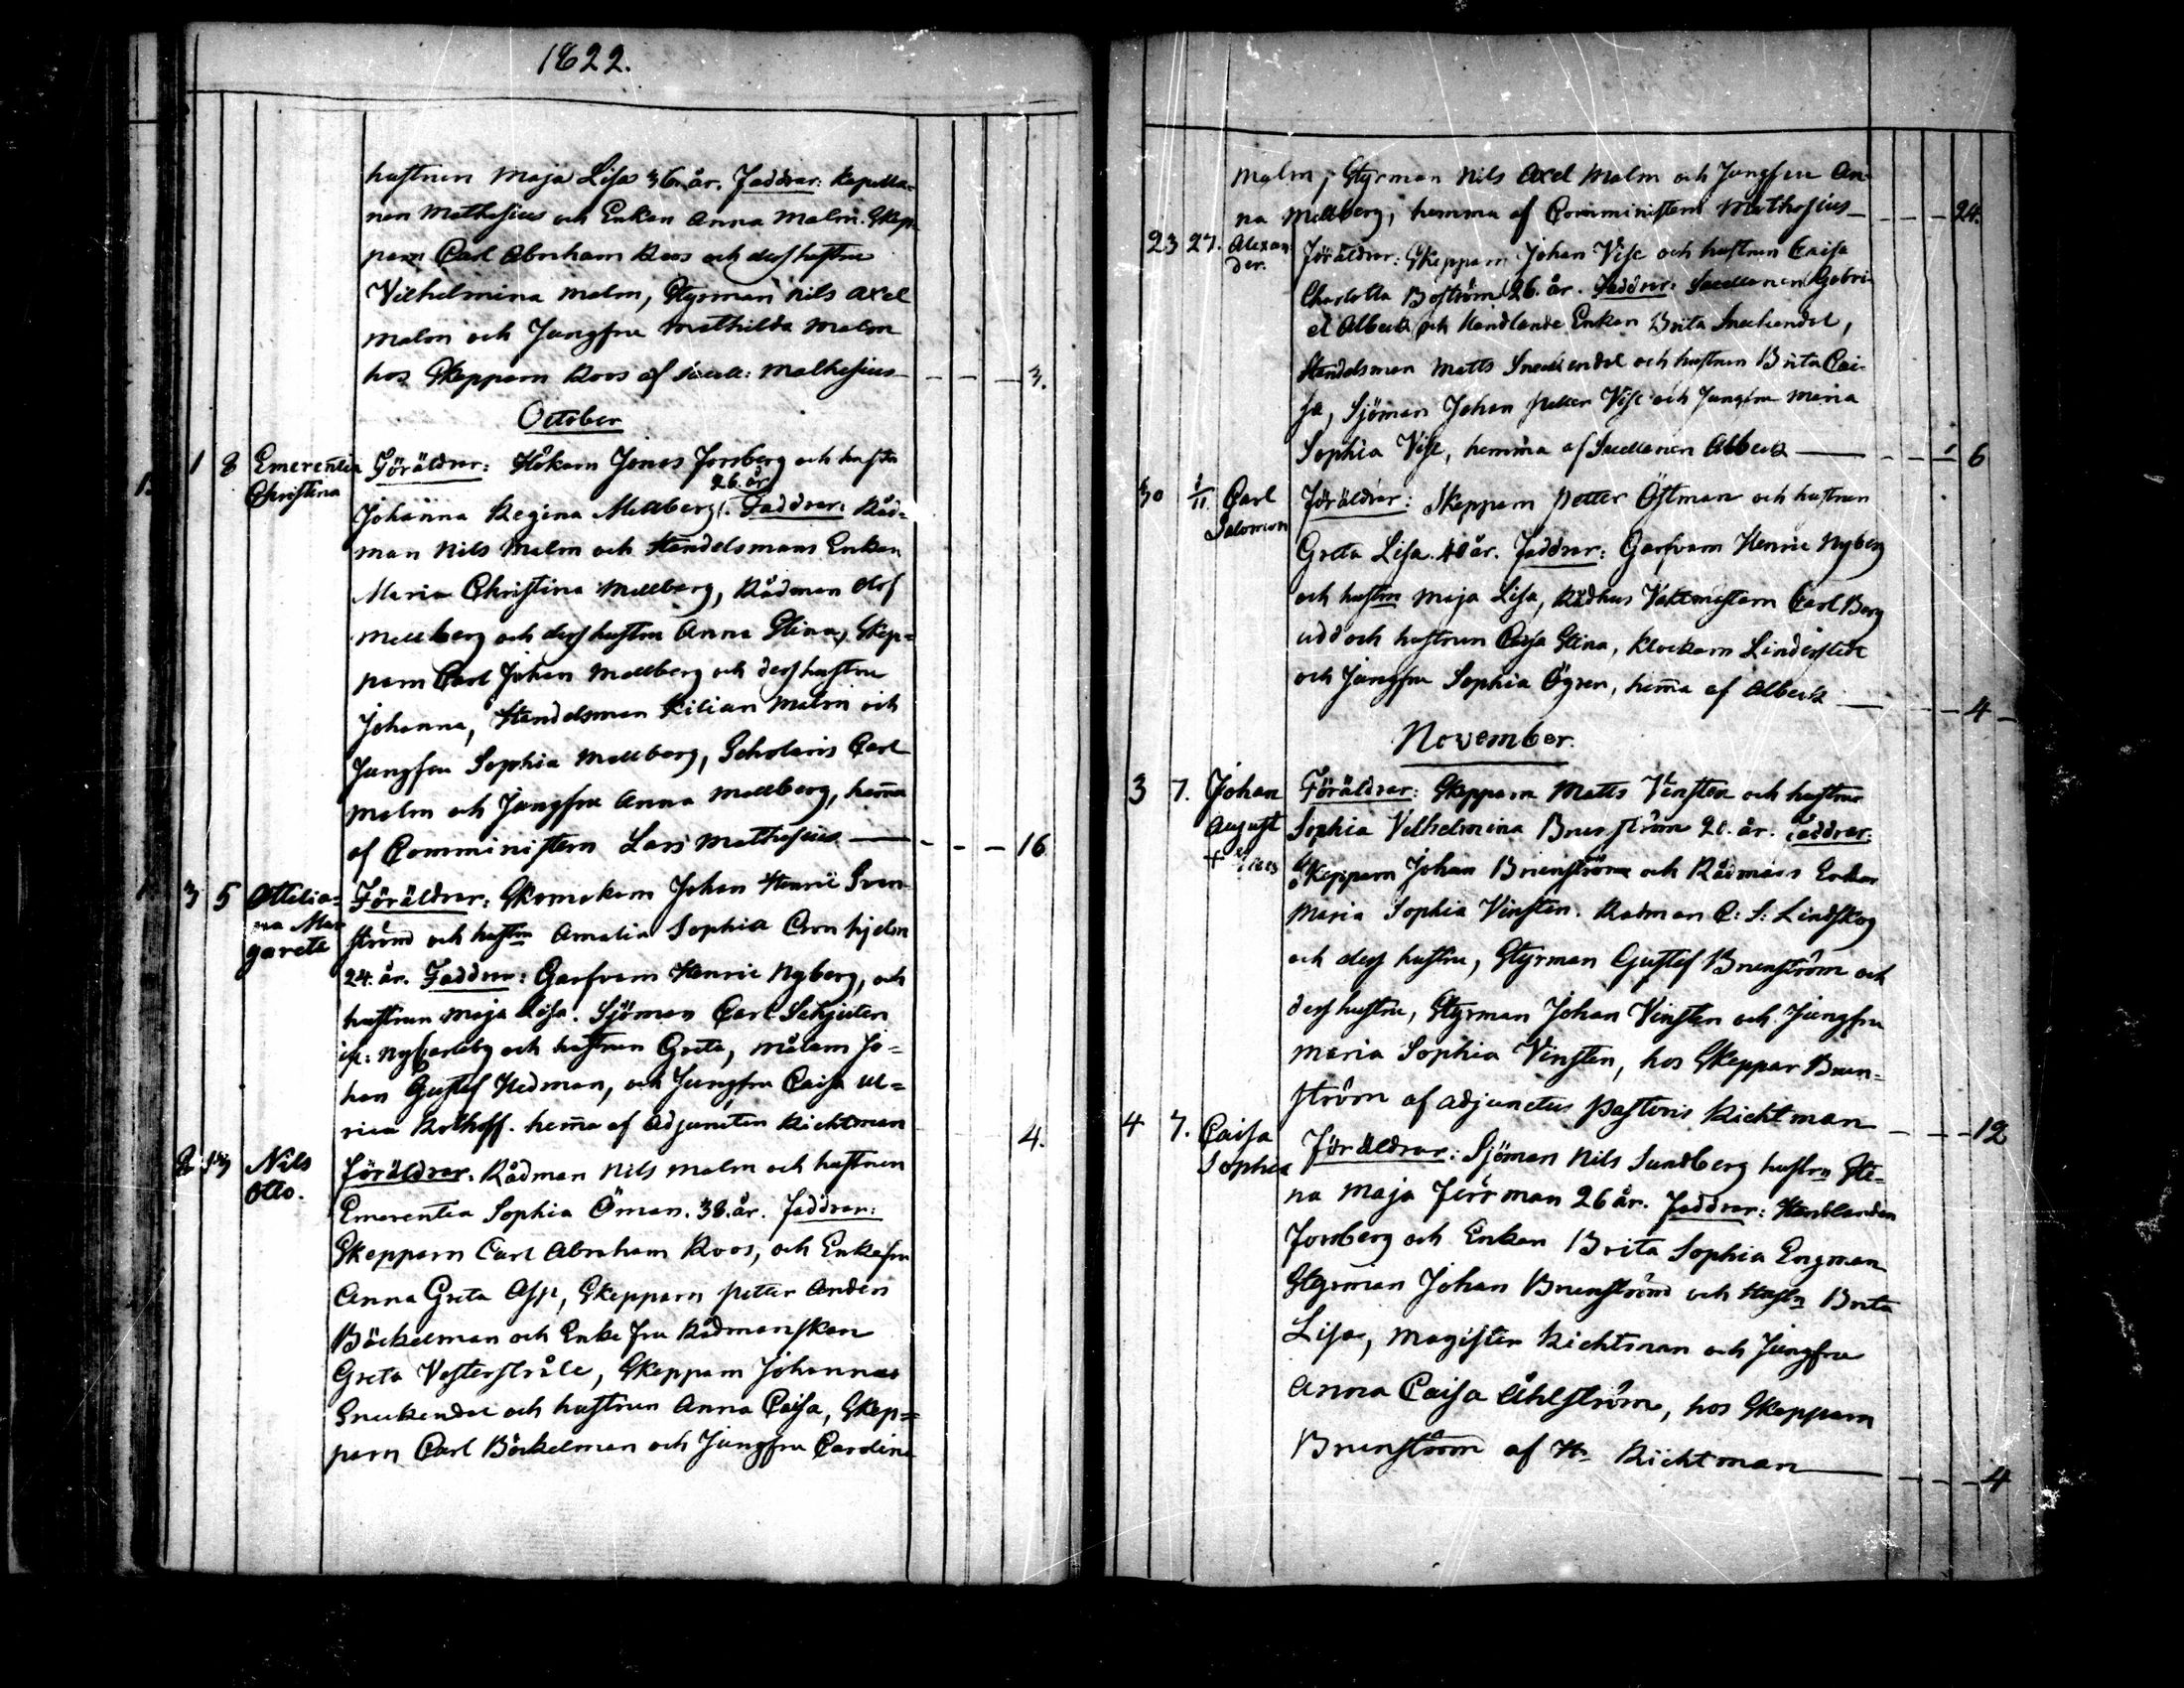 1822.
hustrun Maja Lisa 36 år. Faddrar: Kapella=
nen Mathesius och Enkan Anna Malm. Skep=
parn Carl Abraham Roos och dess hustru
Vilhelmina Malm, Styrman Nils Axel
Malm och Jungfru Mathilda Malm
hos Skepparn Roos af Sacell: Mathesius — 3.
October
1. 1 8 Emerentia Föräldrar: Hökarn Jonas Forsberg och hustr
Christina 26. år
Johanna Regina Mellberg. Faddrar: Råd=
man Nils Malm och Handelsmans Enkan
Maria Christina Mellberg, Rådman Olof
Mellberg och dess hustru Anna Stina, Skep=
parn Carl Johan Mellberg och dess hustru
Johanna, Handelsman Kilian Malm och
Jungfru Sophia Mellberg, Scholaris Carl
Malm och Jungfru Anna Mellberg, hem̄a
af Comministern Lars Mathesius — 16
1 3 5 Ottilia= Föräldrar: Skomakarn Johan Henric Sven
na Mar
gareta ström och hustru Amalia Sophia Cronhjelm
24. år. Faddrar: Garfvarn Henric Nyberg, och
hustrun Maja Lisa. Sjöman Carl Schjuten
i Nycarleby och hustrun Greta, målarn Jo=
han Gustaf Hedman, och Jungfru Caisa Ul=
rica Rolhoff. hem̄a af Adjuncten Richtman 4.
Nils Föräldrar. Rådman Nils Malm och hustrun
Otto.
Emerentia Sophia Öman. 38. år. Faddrar:
Skepparn Carl Abraham Roos, och Enkefru
Anna Greta Asp, Skepparn Petter Anders
Böckelman och Enke fru Rådmanskan
Greta Vesterstråle, Skepparn Johannes
Sneckendal och hustrun Anna Caisa, Skep=
parn Carl Böckelman och Jungfru Carolina
Malm, Styrman Nils Axel Malm och Jungfru An
na Mellberg, hemma af Comministern Mathesius — 24.
23 27. Alexan Föräldrar: Skepparn Johan Vise och hustrun Caisa
der.
Charlotta Boström 26. år. Faddrar: Sacellanen Gabri
el Albeck och Handlande Enkan Brita Sneckendal,
Handelsman Matts Sneckendal och hustrun Brita Cai
sa, Sjöman Johan Petter Vise och Jungfru Maria
Sophia Vise, hemma af Sacellanen Albeck — 6
30 1/11. Carl Föräldrar: Skepparn Petter Östman och hustrun
Salomon
Greta Lisa. 40 år. Faddrar: Garfvarn Henric Nyberg
och hustru Maja Lisa, Rådhus Vaktmästarn Carl Berg
udd och hustrun Caisa Stina, Klockarn Linderstedt
och Jungfru Sophia Ögren, hem̄a af Albeck — 4
November.
3 7. Johan Föräldrar: Skepparn Matts Vinsten och hustrun
August Sophia Vilhelmina Brunström 20. år. Faddrar:
Skepparn Johan Brunström och Rådmans Enkan
Maria Sophia Vinsten. Rådman C: S: Lindskog
och dess hustru, Styrman Gustaf Brunström och
dess hustru, Styrman Johan Vinsten och Jungfru
Maria Sophia Vinsten, hos Skeppar Brun=
ström af Adjunctus Pastoris Richtman — 12
4 7. Caisa Föräldrar: Sjöman Nils Sundberg hustru Sti=
Sophia
na Maja Jerrman 26 år. Faddrar: Handlanden
Forsberg och Enkan Brita Sophia Engman
Styrman Johan Brunström och Hustru Brita
Lisa, Magister Richtman och Jungfru
Anna Caisa Åhlström, hos Skepparn
Brunström af Hr Richtman — 4